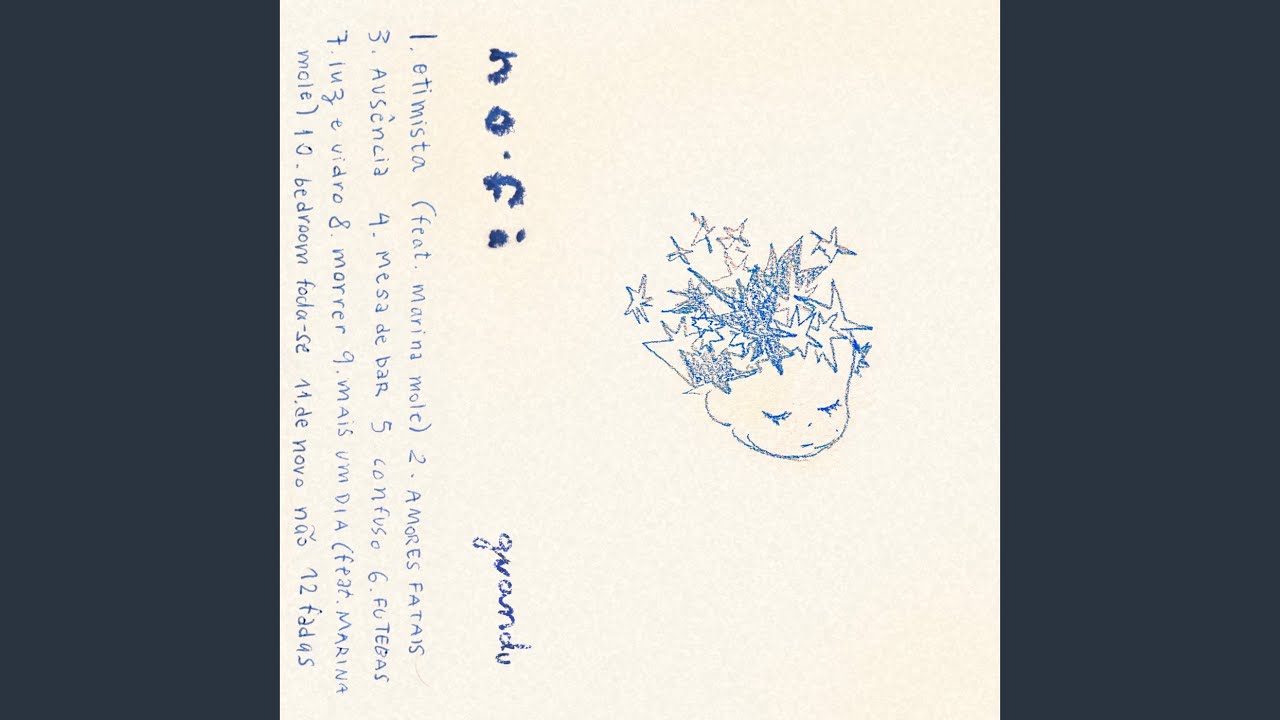 no.fi
guandu
1. otimista (feat. marina mole) 2. AMORES FATAIS
3. AUSÊNCIA 4. mesa de baR 5 confuso 6. FUTEBAS
7. luz e vidro 8. morrer 9. MAIS UM DIA (feat. MARINA
mole) 10. bedroom foda-se 11. de novo não 12 fadas